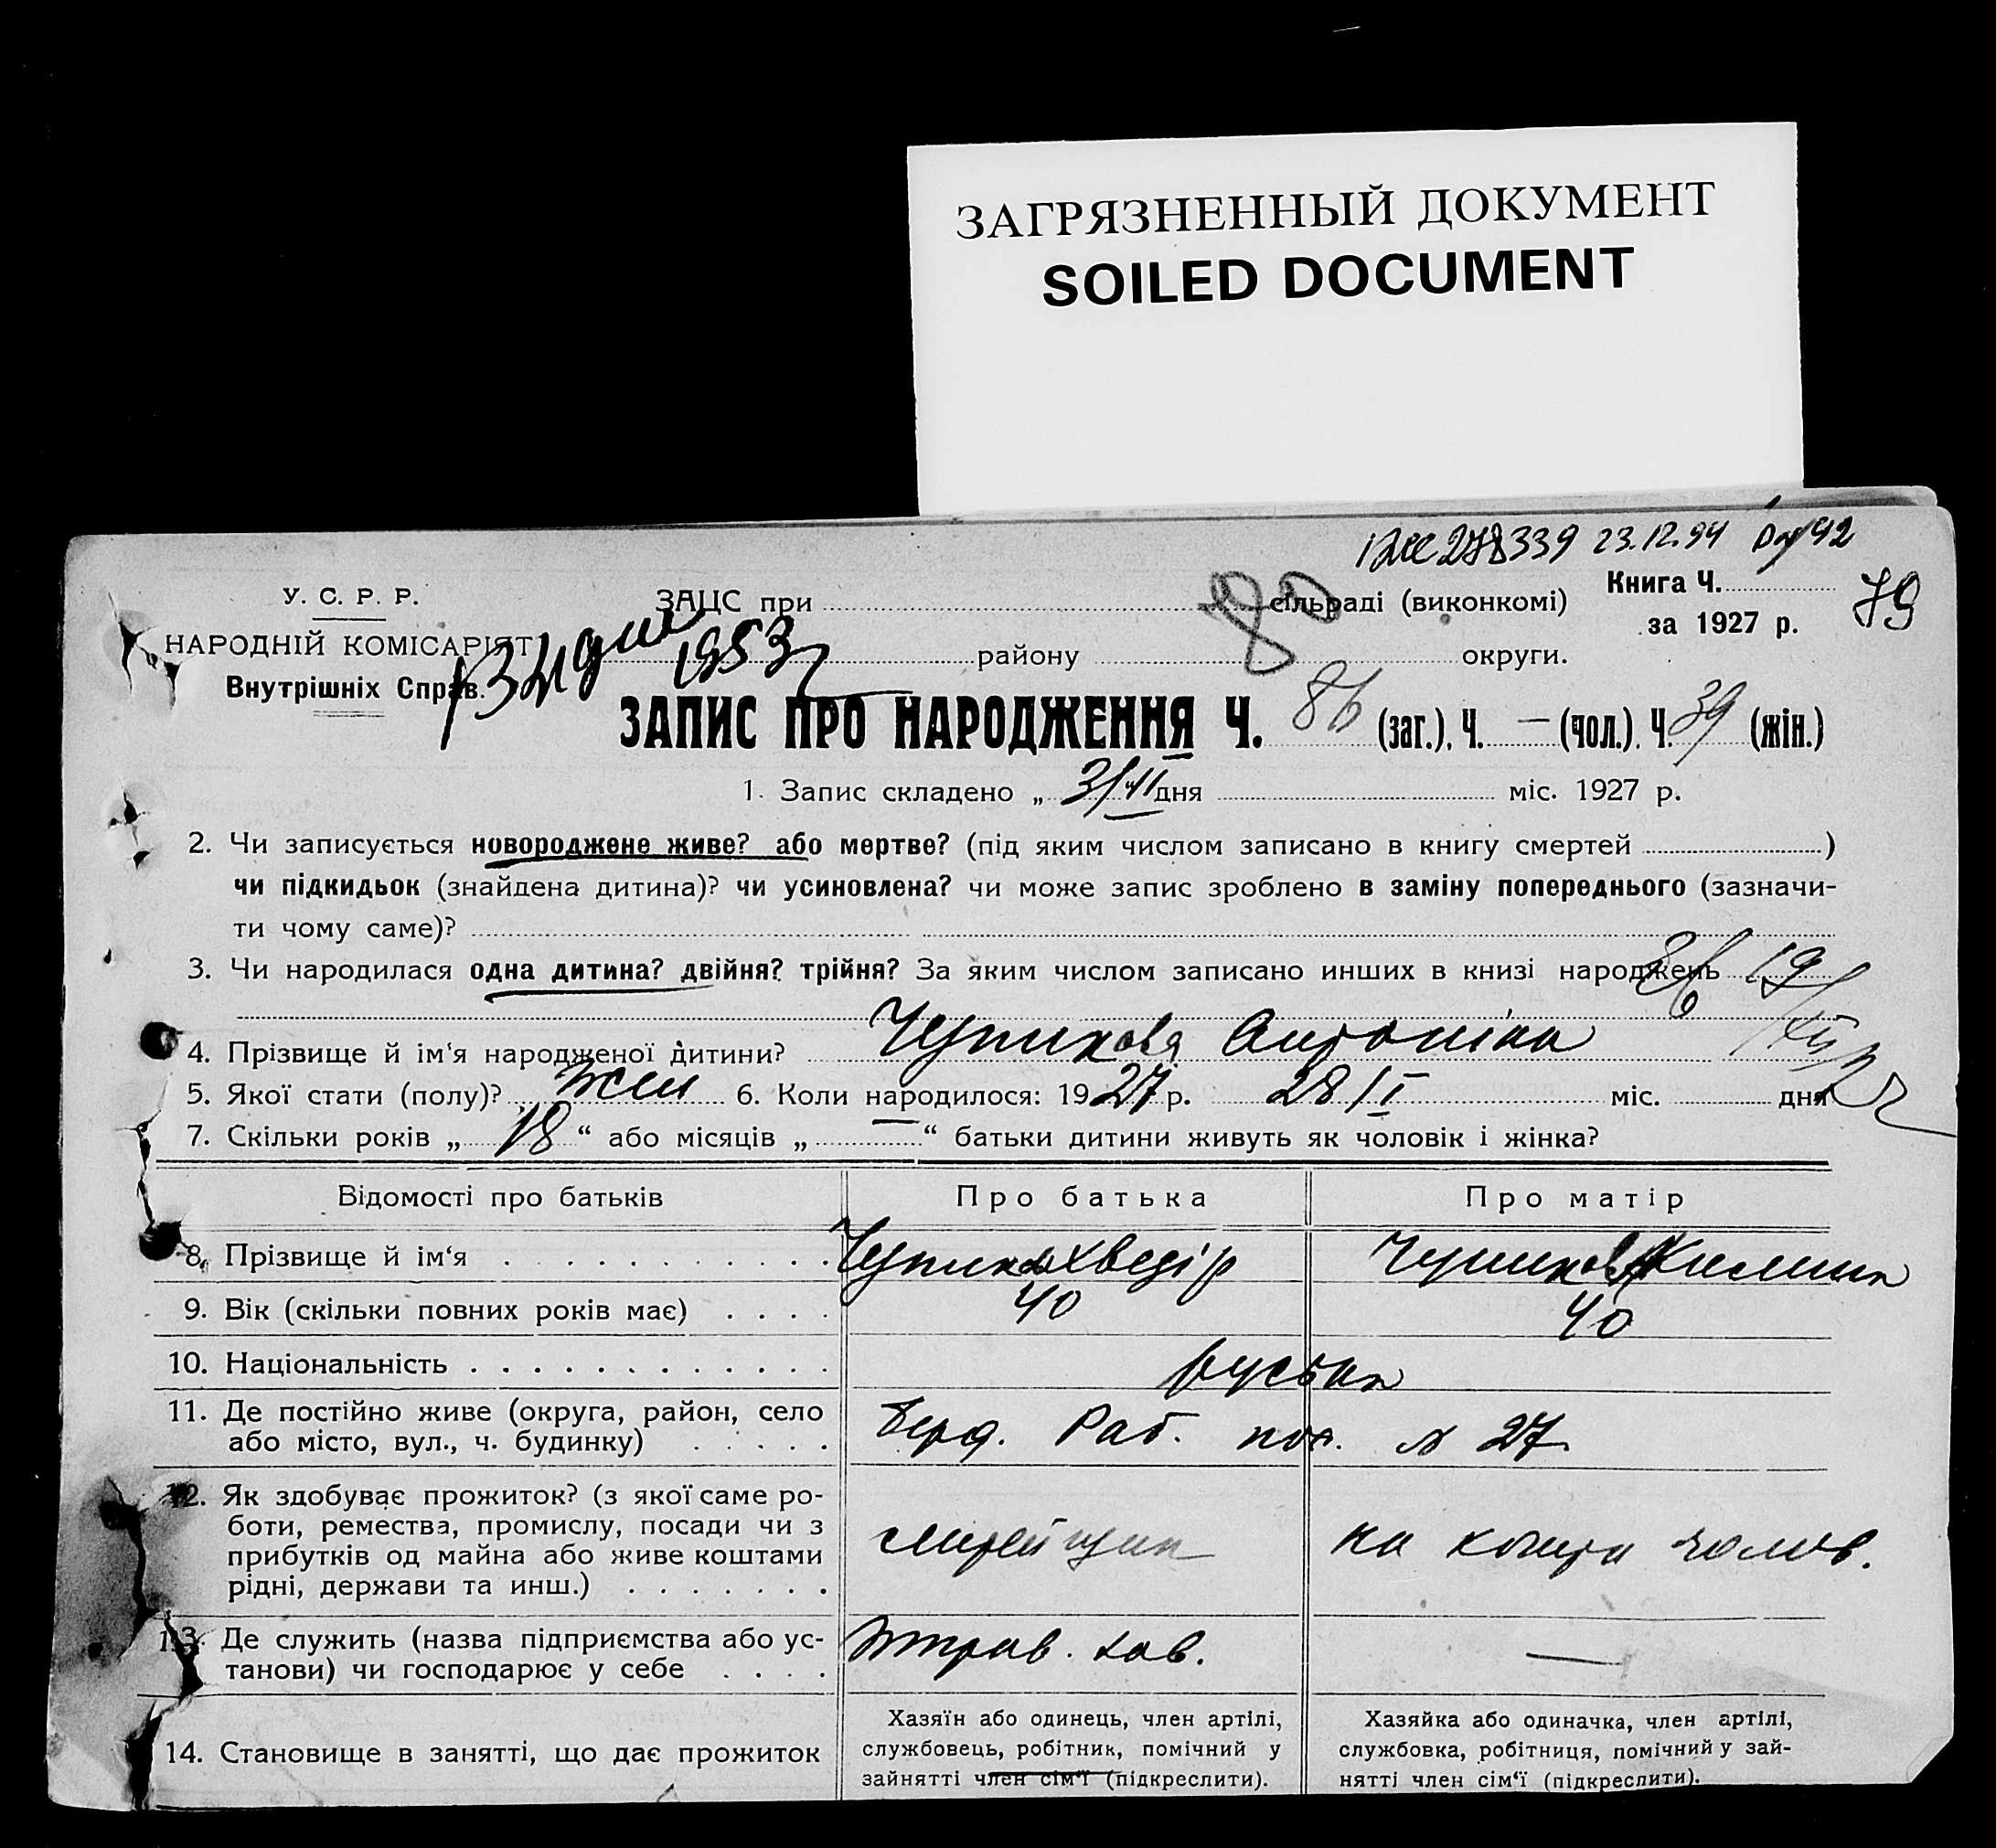 ЗАГРЯЗНЕННЫЙ ДОКУМЕНТ
SOILED DOCUMENT
278339 23.12.94
У. С. Р. Р.
НАРОДНІЙ КОМІСАРІЯТ
Внутрішніх Справ.
1953
ЗАЦС при сільраді (виконкомі)
80
Книга Ч.
за 1927 р.
79
району округи.
ЗАПИС ПРО НАРОДЖЕННЯ Ч. 86 (заг.), Ч. — (чол.). Ч. 39 (жін.)
1. Запис складено „ 3/II дня міс. 1927 р.
2. Чи записується новороджене живе? або мертве? (під яким числом записано в книгу смертей )
чи підкидьок (знайдена дитина)? чи усиновлена? чи може запис зроблено в заміну попереднього (зазначи-
ти чому саме)?
3. Чи народилася одна дитина? двійня? трійня? За яким числом записано инших в книзі народжень
4. Прізвище й ім‘я народженої дитини? Чупикова Антоніна
5. Якої стати (полу)? жін 6. Коли народилося: 1927 р. 28/I міс. дня
7. Скільки років „ 18 “ або місяців „ — “ батьки дитини живуть як чоловік і жінка?
Відомості про батьків Про батька Про матір
8. Прізвище й ім‘я Чупиков Хведір Чупикова
9. Вік (скільки повних років має) 40 40
10. Національність
11. Де постійно живе (округа, район, село
або місто, вул., ч. будинку)
Берд. Раб. пос. № 27
12. Як здобуває прожиток? (з якої саме ро-
боти, ремества, промислу, посади чи з
прибутків од майна або живе коштами
рідні, держави та инш.)
на кошти чолов.
13. Де служить (назва підприємства або ус-
танови) чи господарює у себе
—
14. Становище в занятті, що дає прожиток
Хазяїн або одинець, член артілі,
службовець, робітник, помічний у
зайнятті член сім‘ї (підкреслити).
Хазяйка або одиначка, член артілі,
службовка, робітниця, помічний у зай-
нятті член сім‘ї (підкреслити).